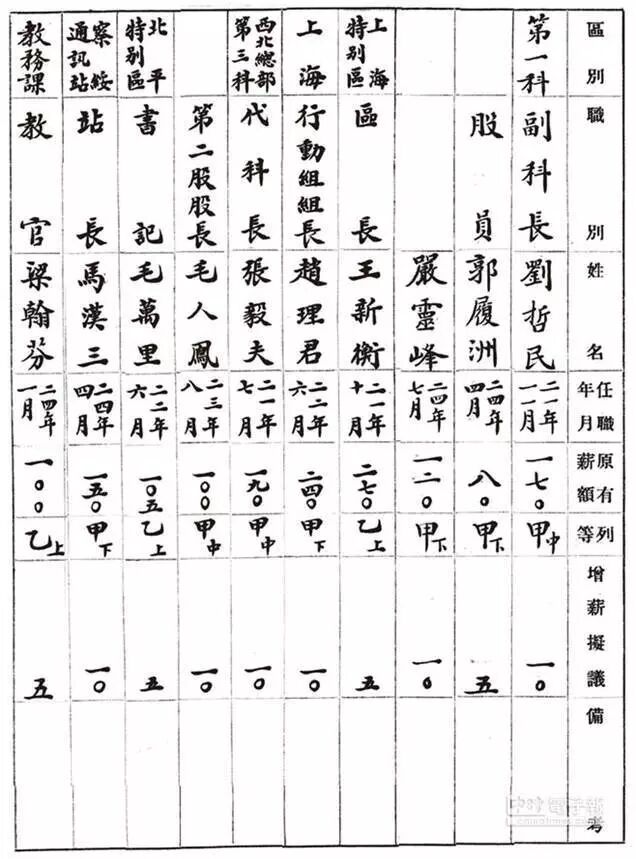 區別 職別 姓名 任職年月 原有薪額 列等 增薪擬議 備考
第一科 副科長 劉哲民 二一年一一月 一七〇 甲中 一〇
股員 郭履洲 二四年四月 八〇 甲下 五
嚴靈峰 二四年七月 一二〇 甲下 一〇
上海特别區 區長 王新衡 二一年十月 二七〇 乙上 五
上海 行動組組長 趙理君 二二年六月 二四〇 甲下 一〇
西北總部第三科 代科長 張毅夫 二一年七月 一九〇 甲中 一〇
第二股股長 毛人鳳 二三年八月 一〇〇 甲中 一〇
北平特别區 書記 毛萬里 二二年六月 一〇五 乙上 五
察綏通訊站 站長 馬漢三 二四年四月 一五〇 甲下 一〇
教務課 教官 梁翰芬 二四年一月 一〇〇 乙上 五
中時電子報